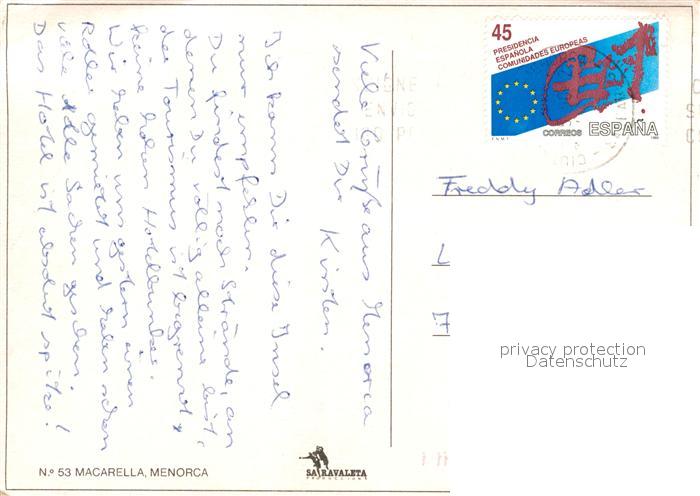 45
PRESIDENCIA
ESPAÑOLA
COMUNIDADES EUROPEAS
CORREOS ESPAÑA
Viele Grüße aus Menorca
sendet Dir Kirsten.
Ich kann Dir diese Insel
nur empfehlen.
Du findest noch Strände, an
denen Du völlig alleine bist,
der Tourismus ist begrenzt,
keine hohen Hotelbunker.
Wir haben uns gestern einen
Roller gemietet und haben schon
viele tolle Sachen gesehen.
Das Hotel ist absolut spitze!
Freddy Adler
L
privacy protection
Datenschutz
N.º 53 MACARELLA, MENORCA
SA RAVALETA
PRODUCCIONS